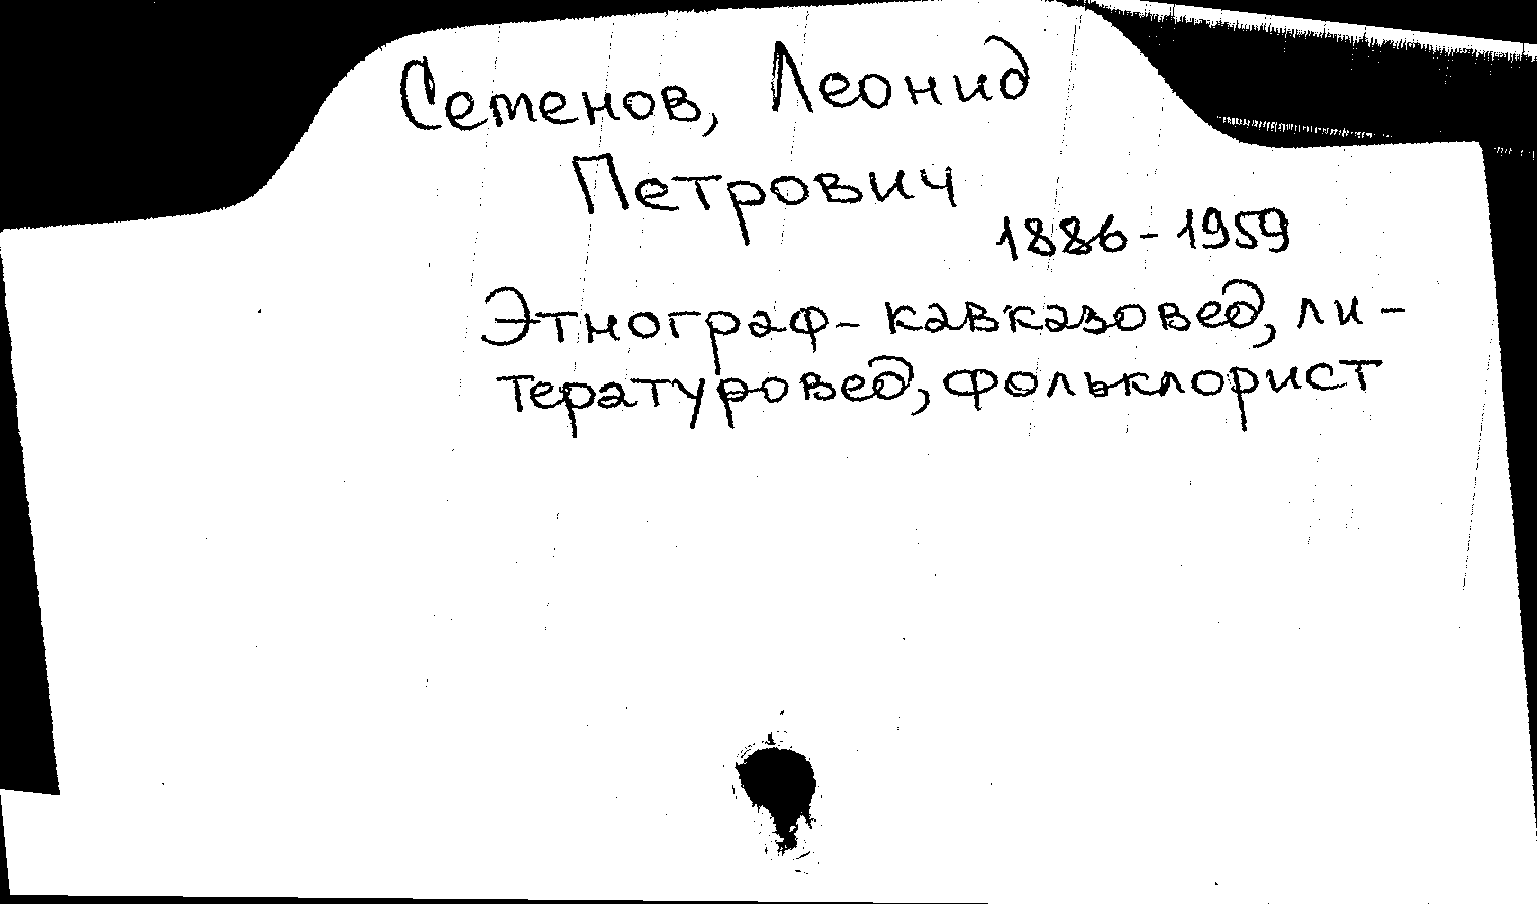 Семенов, Леонид
Петрович
1886-1959
Этнограф-кавказовед, ли-
тературовед, фольклорист